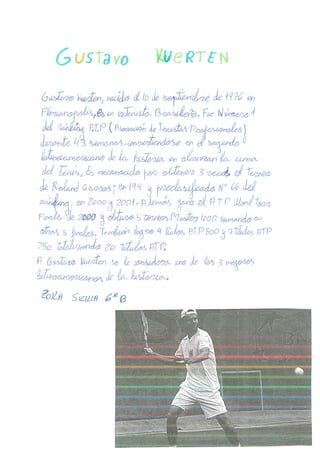 GUSTAVO KUERTEN
Gustavo Kuerten, nacido el 10 de septiembre de 1976 en
Florianopolis, es un extenista Brasileño. Fue Número 1
del ránking A.T.P (Asociación de Tenistas Profesionales)
durante 43 semanas. convirtiendose en el segundo
latinoamericano de la historia en alcanzar la cima
del tenis, Es reconocido por obtener 3 veces el torneo
de Roland Garros; en 199 y preclasificado Nº 66 del
ránking, en 2000 y 2001. Además ganó el A.T.P World Tour
Finals de 2000 y obtuvo 5 torneos Masters 1000 sumando a
otras 5 finales. También logro 4 títulos ATP 500 y 7 títulos ATP
250 totalizando 20 títulos ATP.
A Gustavo Kuerten se le considera uno de los 3 mejores
latinoamericanos de la historia.
6º B